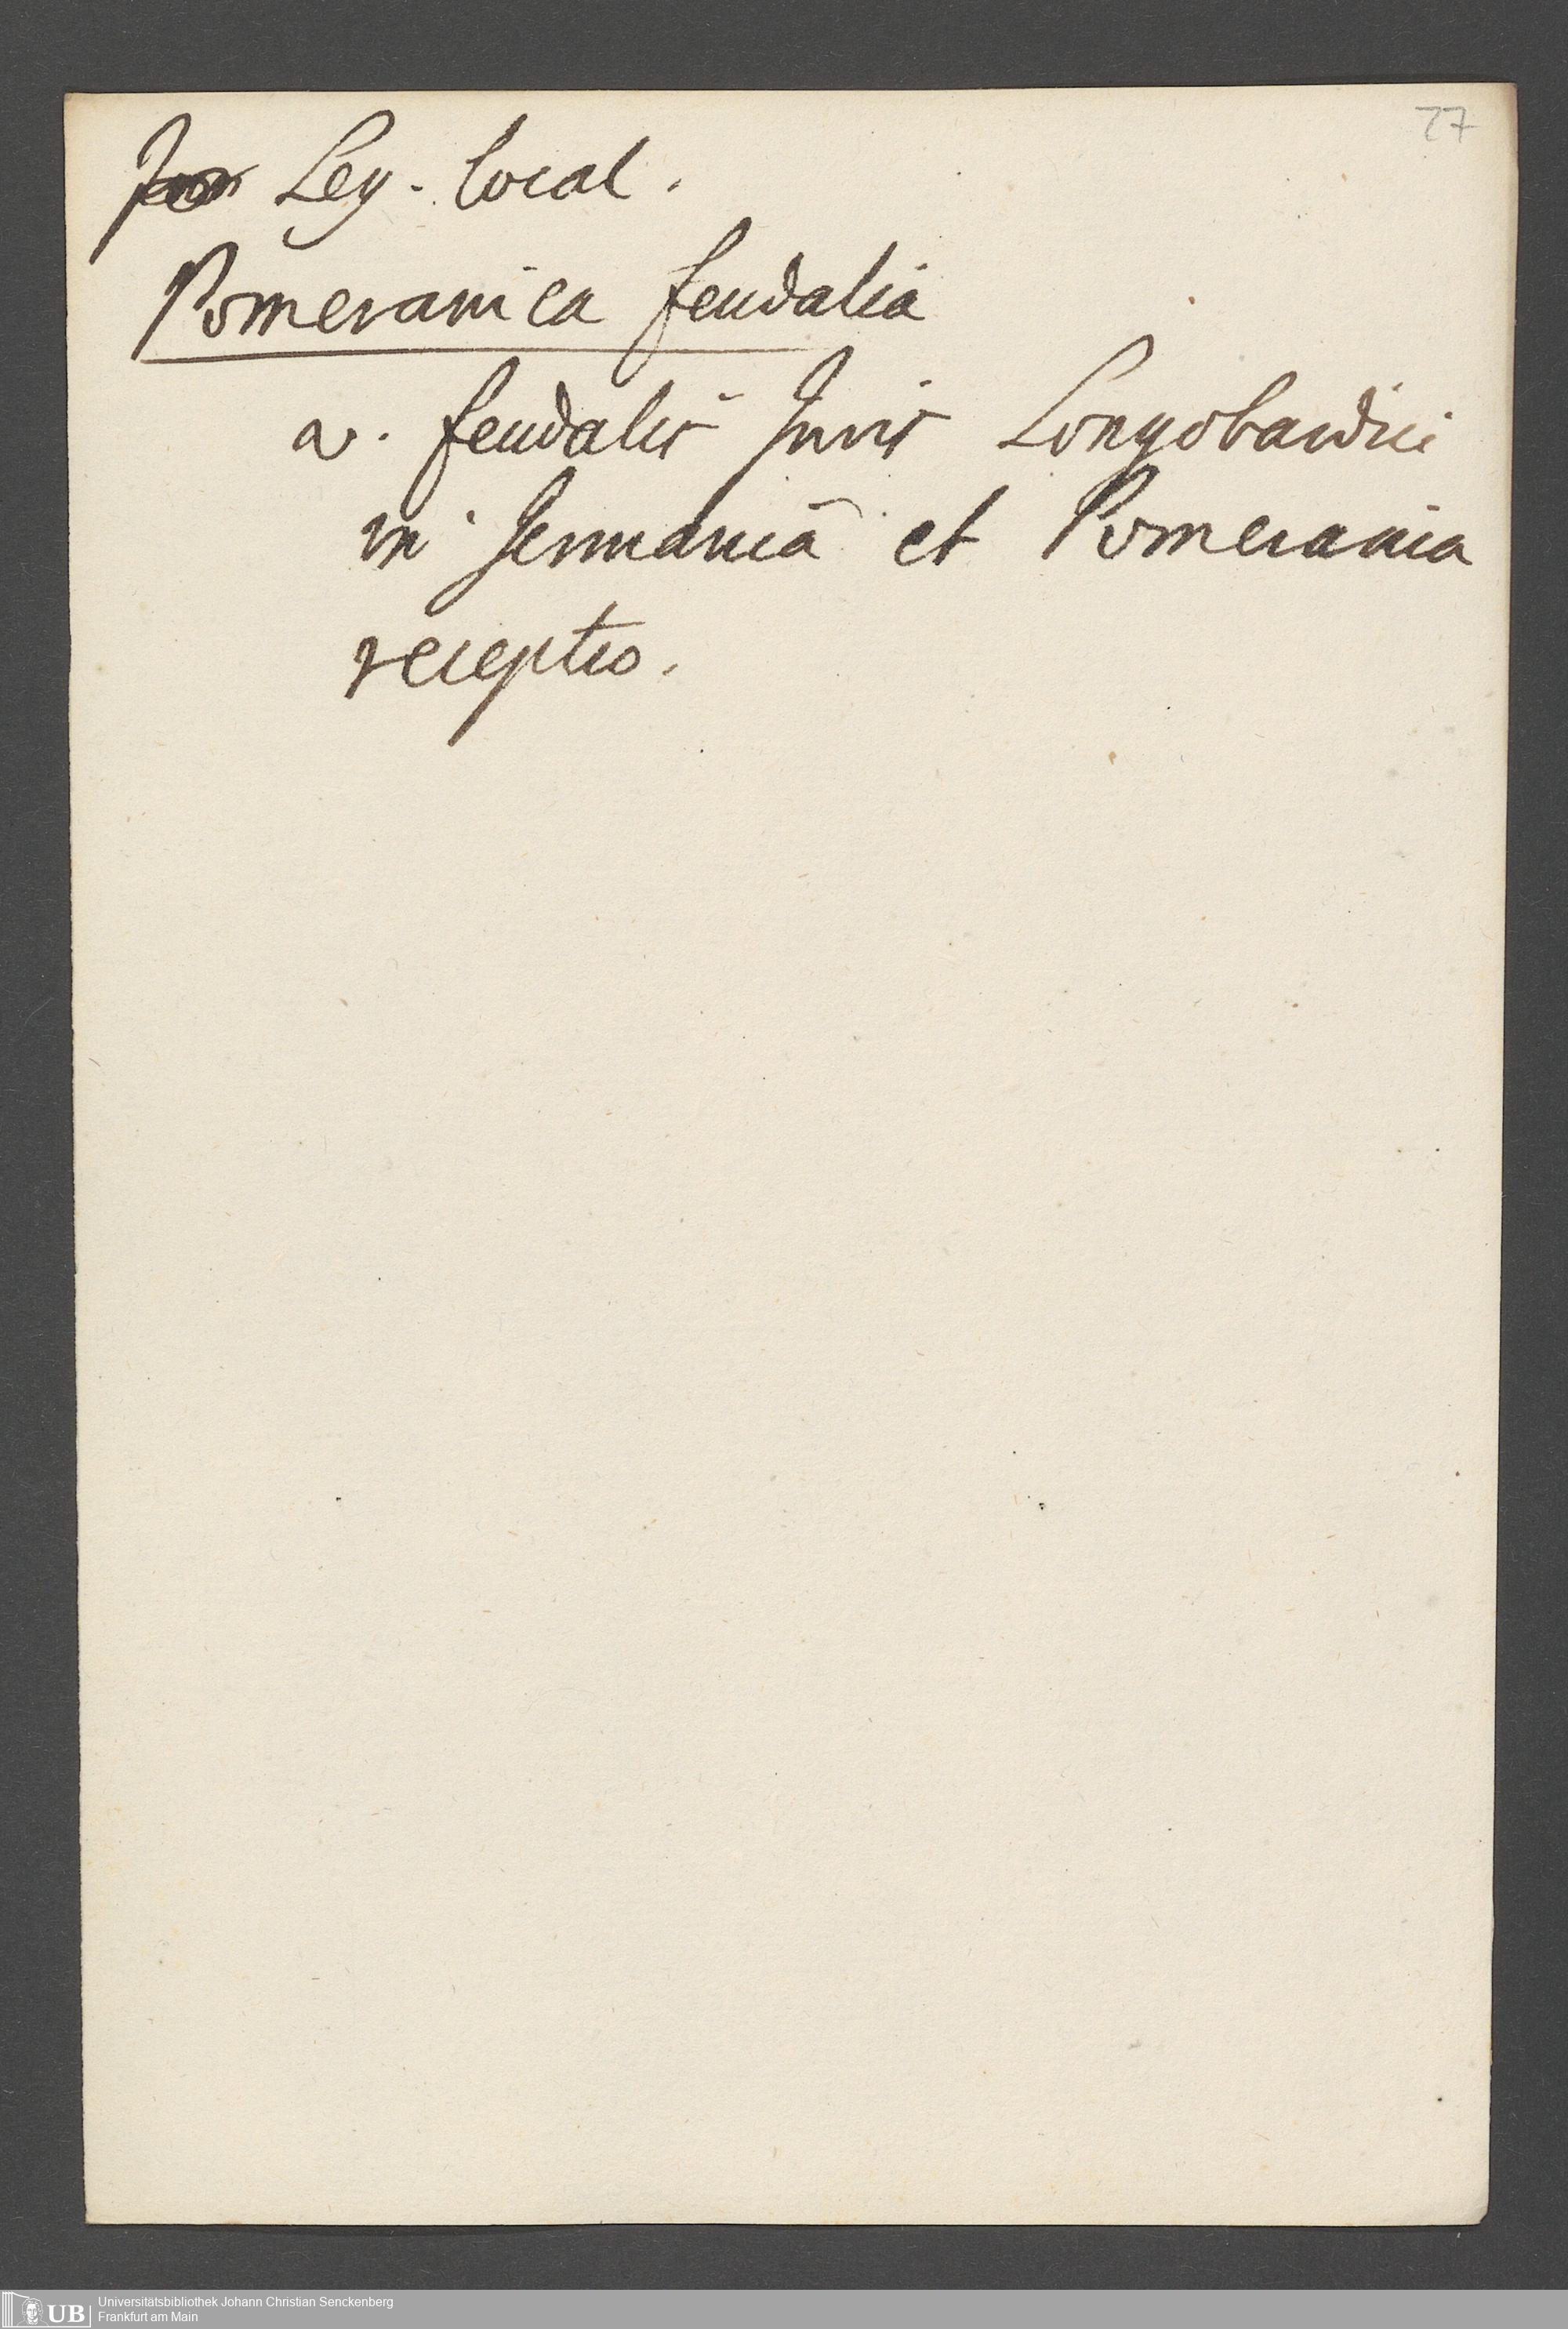 27
Leg. local.
Pomeranica feudalia
a. feudalis Juris Longobardici
in Germania et Pomerania
receptio.
UB Universitätsbibliothek Johann Christian Senckenberg
Frankfurt am Main